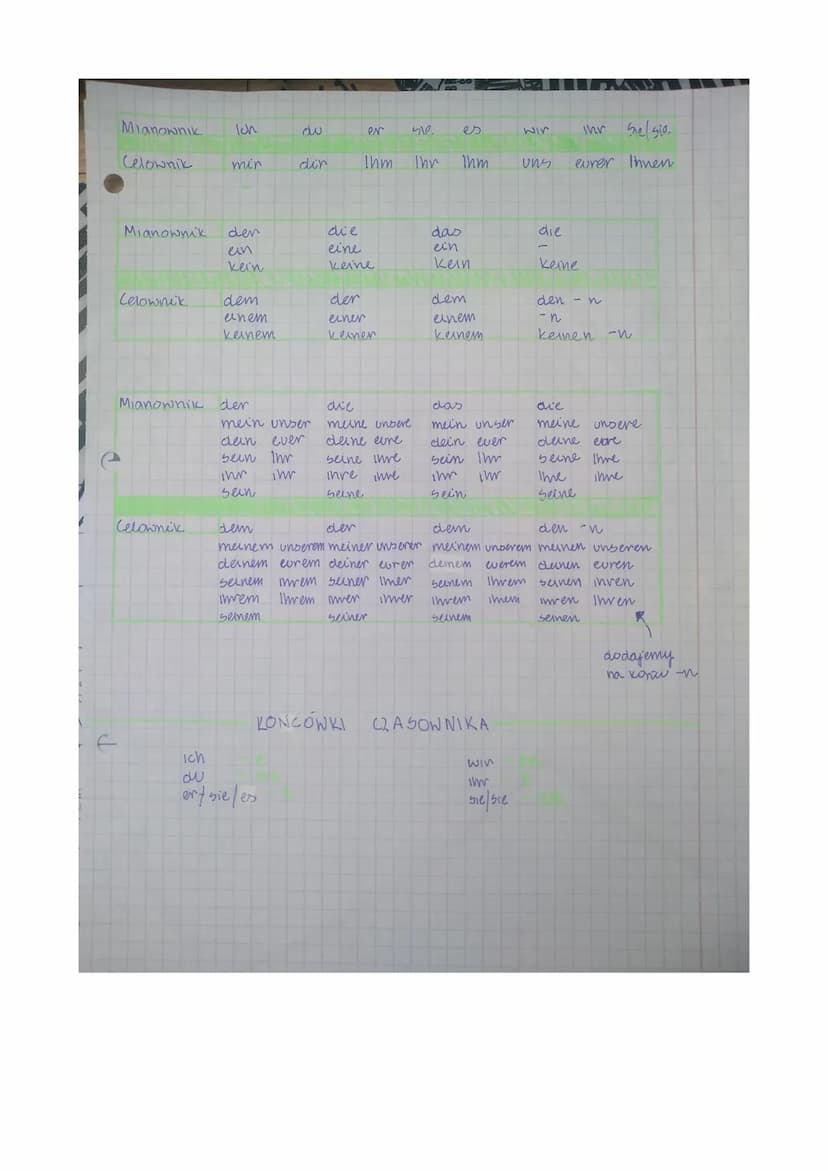 Mianownik Ich du er sie es wir ihr sie/sie
Celownik mir dir Ihm Ihr Ihm uns eurer Ihnen
Mianownik der die das die
ein eine ein -
kein keine kein keine
Celownik dem der dem den -n
einem einer einem -n
keinem keiner keinem keinen -n
Mianownik der die das die
mein unser meine unsere mein unser meine unsere
dein euer deine eure dein euer deine eure
sein Ihr seine Ihre sein Ihr seine Ihre
ihr ihr ihre ihre ihr ihr Ihre ihre
sein seine sein seine
Celownik dem der dem den -n
meinem unserem meiner unserer meinem unserem meinen unseren
deinem eurem deiner eurer deinem euerem deinen euren
seinem ihrem seiner ihrer seinem Ihrem seinen ihren
ihrem Ihrem ihrer ihrer ihrem ihrem ihren Ihren
seinem seiner seinem seinen
dodajemy
na końcu -n
KOŃCÓWKI CZASOWNIKA
ich - e wir - en
du ihr
er/sie/es sie/sie - en